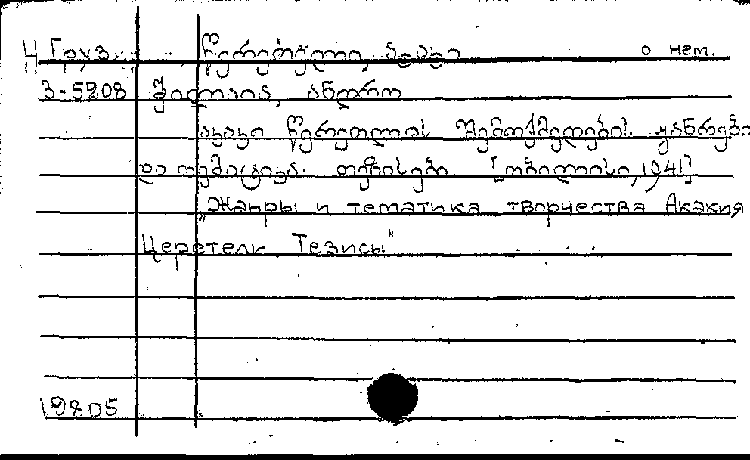 Н Груз. წერეთელი, აკაკი о нем.
3-5808 შილაია, ანდრო
აკაკი წერეთლის შემოქმედების ჟანრები
და თემატიკა. თეზისები [თბილისი, 1941]
„Жанры и тематика творчества Акакия
Церетели Тезисы"
19805